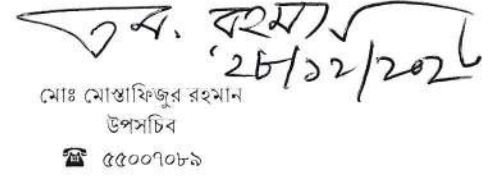 ম. রহমান
২৮/১২/২০২
মোঃ মোস্তাফিজুর রহমান
উপসচিব
☎ ৫৫০০৭০৮৯